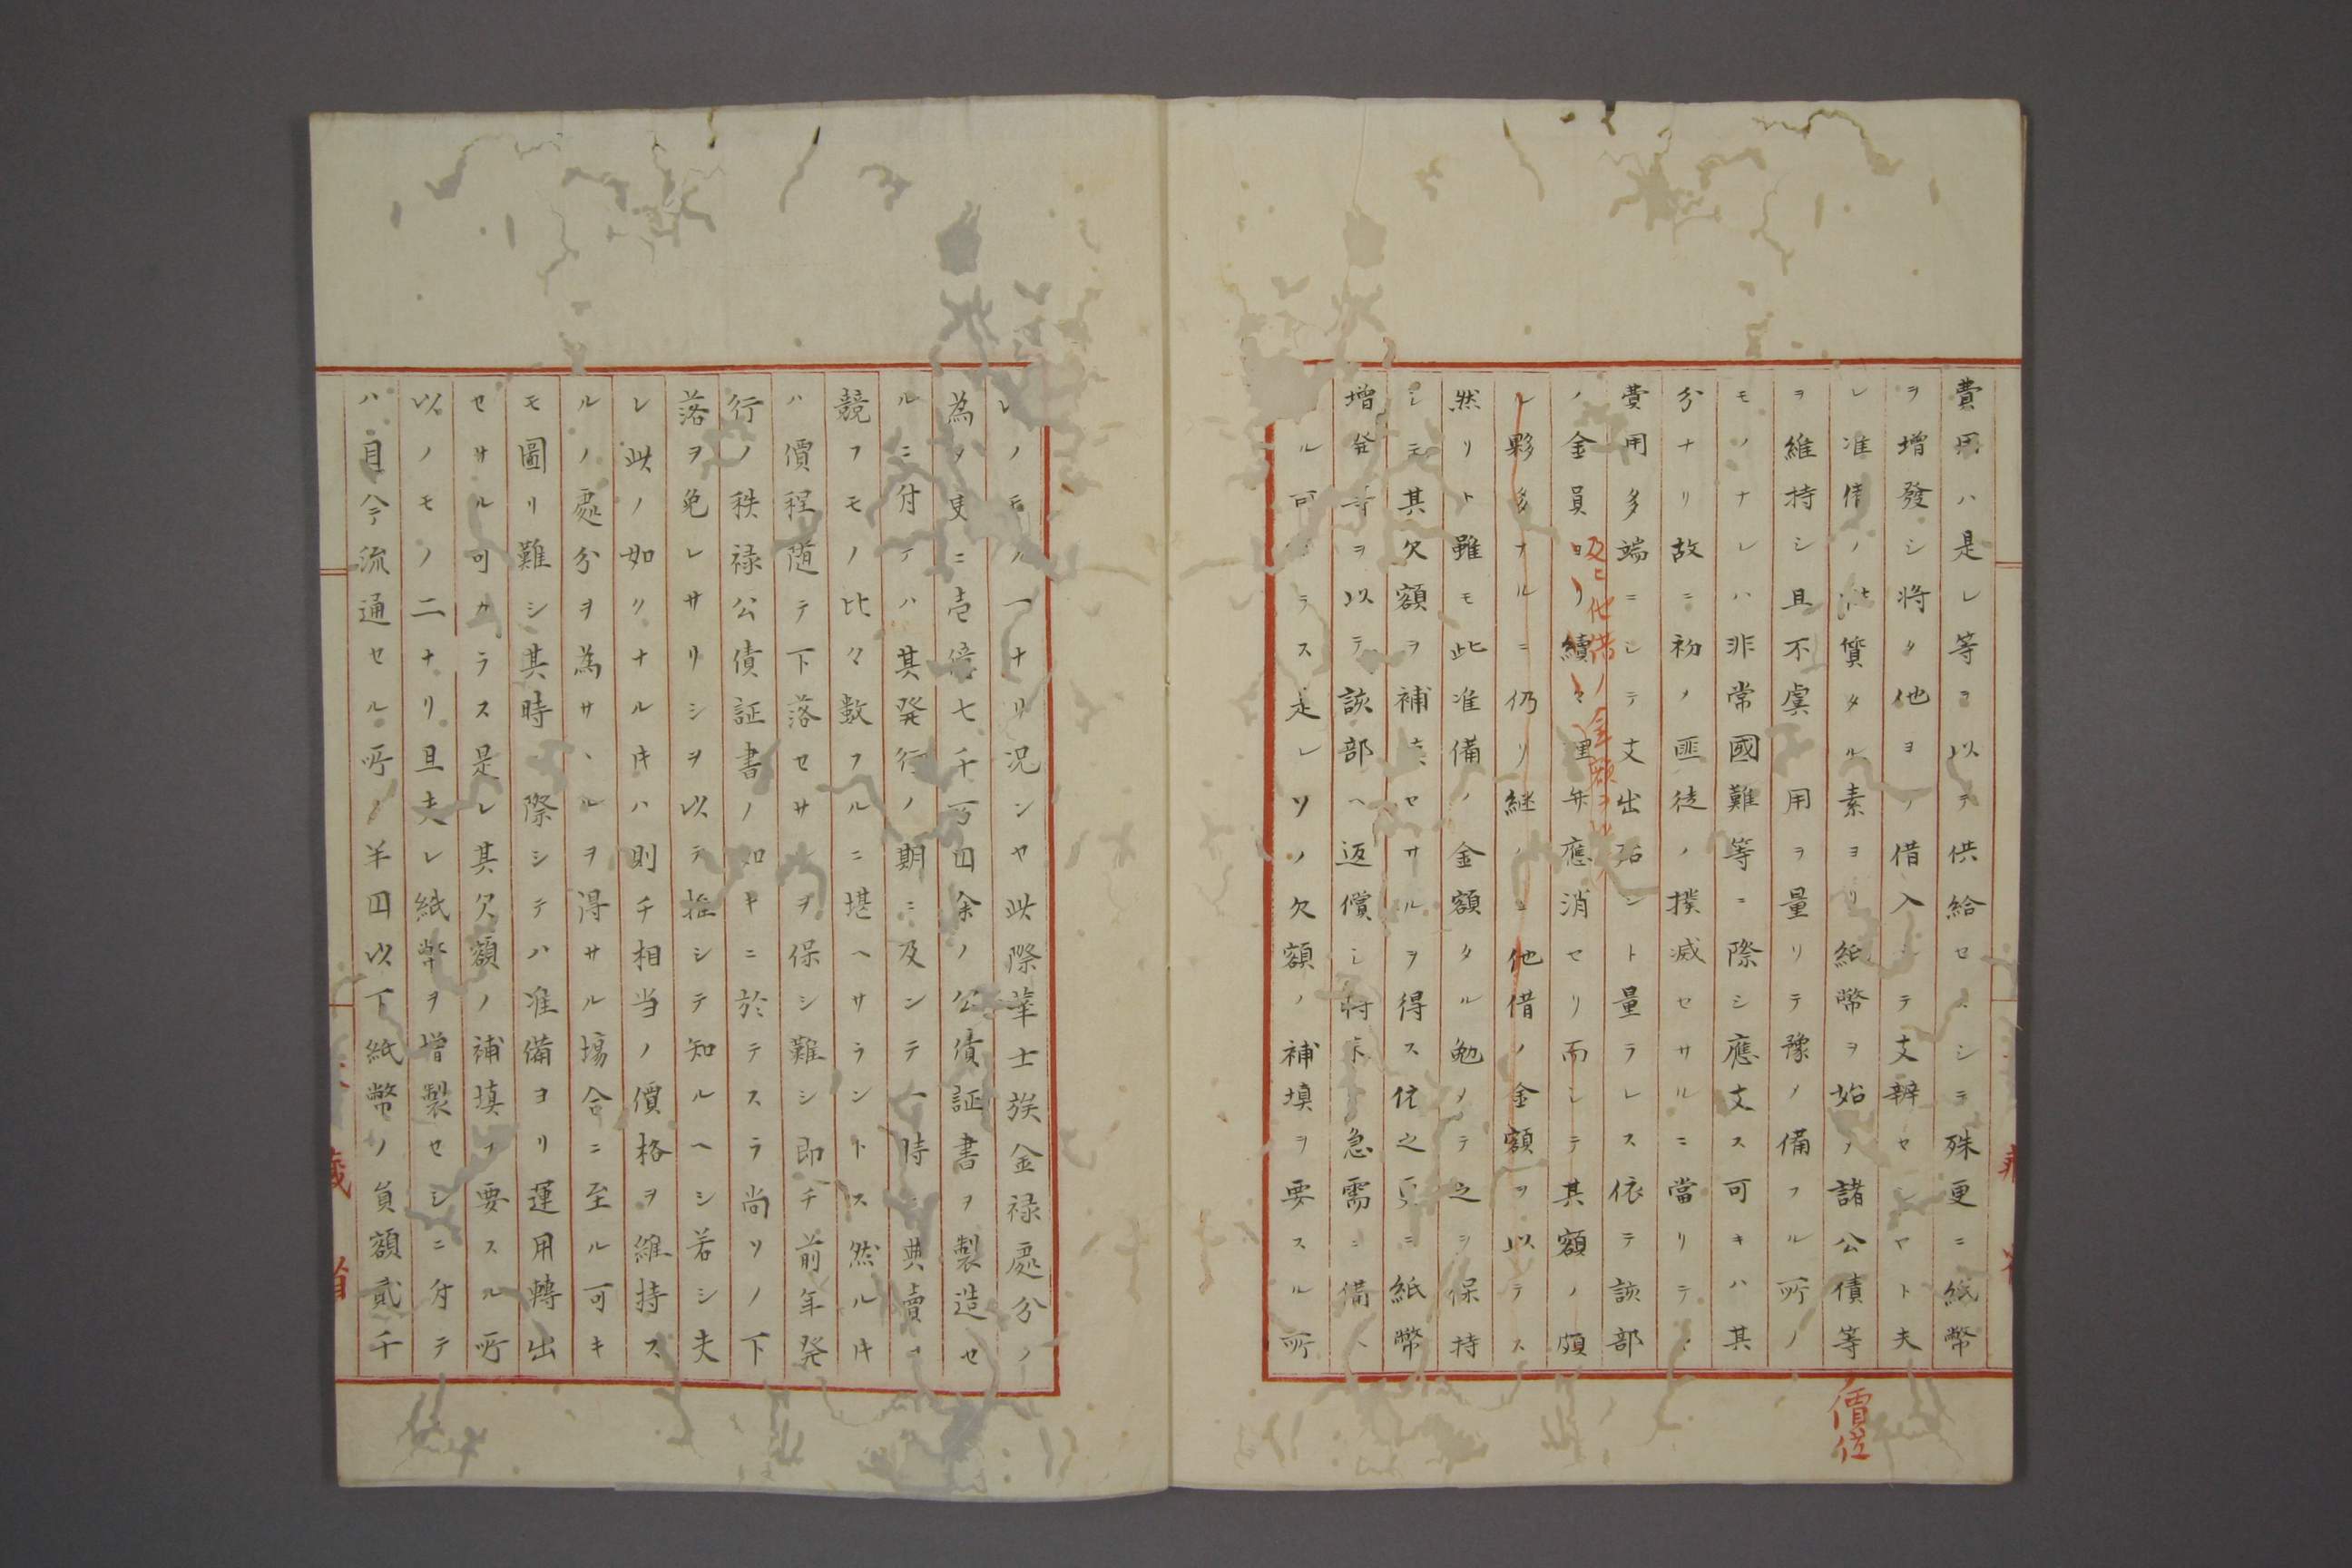 費用ハ是レ等ヲ以テ供給セスシテ殊更ニ紙幣
ヲ増發シ將タ他ヨリ借入シテ支辨セシヤト夫
レ准備ノ性質タル素ヨリ紙幣ヲ始メ諸公債等
ノ價位
ヲ維持シ且不虞ノ用ヲ量リテ豫メ備フル所ノ
モノナレハ非常國難等ニ際シ應支ス可キハ其
分ナリ故ニ初メ匪徒ノ撲滅セサルニ當リテハ
費用多端ニシテ支出殆ント量ラレス依テ該部
ノ金員ヨリ續々運弁應消セリ而シテ其額ノ頗
及ヒ他借ノ金額ヲ以
ル夥多ナルニ仍リ継クニ他借ノ金額ヲ以テス
然リト雖モ此准備ノ金額タル勉メテ之ヲ保持
シ其欠額ヲ補填セサルヲ得ス依之更ニ紙幣
増発等ヲ以テ該部ヘ返償シ將来ノ急需ニ備ヘ
サル可カラス是レソノ欠額ノ補填ヲ要スル所
レノモノ一ナリ況ンヤ此際華士族金禄處分ノ
為メ更ニ壱億七千万円余ノ公債証書ヲ製造セ
ルニ付テハ其発行ノ期ニ及ンテ一時ニ典賣ヲ
競フモノ比々数フルニ堪ヘサラントス然ルキ
ハ價程随テ下落セサルヲ保シ難シ即チ前年発
行ノ秩禄公債証書ノ如キニ於テスラ尚ソノ下
落ヲ免レサリシヲ以テ推シテ知ルヘシ若シ夫
レ此ノ如クナルキハ則チ相当ノ價格ヲ維持ス
ルノ處分ヲ為サヽルヲ得サル塲合ニ至ル可キ
モ圖リ難シ其時ニ際シテハ准備ヨリ運用轉出
セサル可カラス是レ其欠額ノ補填ヲ要スル所
以ノモノ二ナリ且夫レ紙幣ヲ増製セシニ付テ
ハ自今流通セル所ノ半円以下紙幣ノ負額貳千